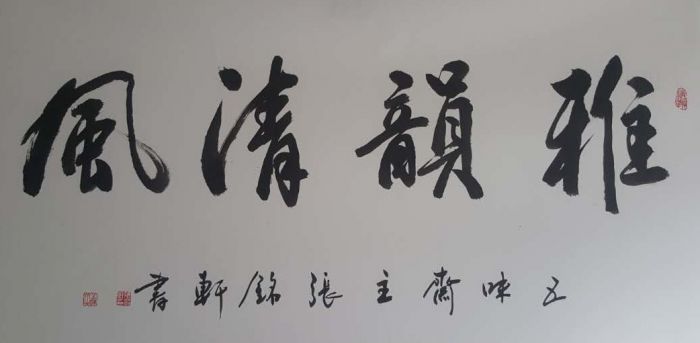 雅韻清風
五味齋主張銘軒書